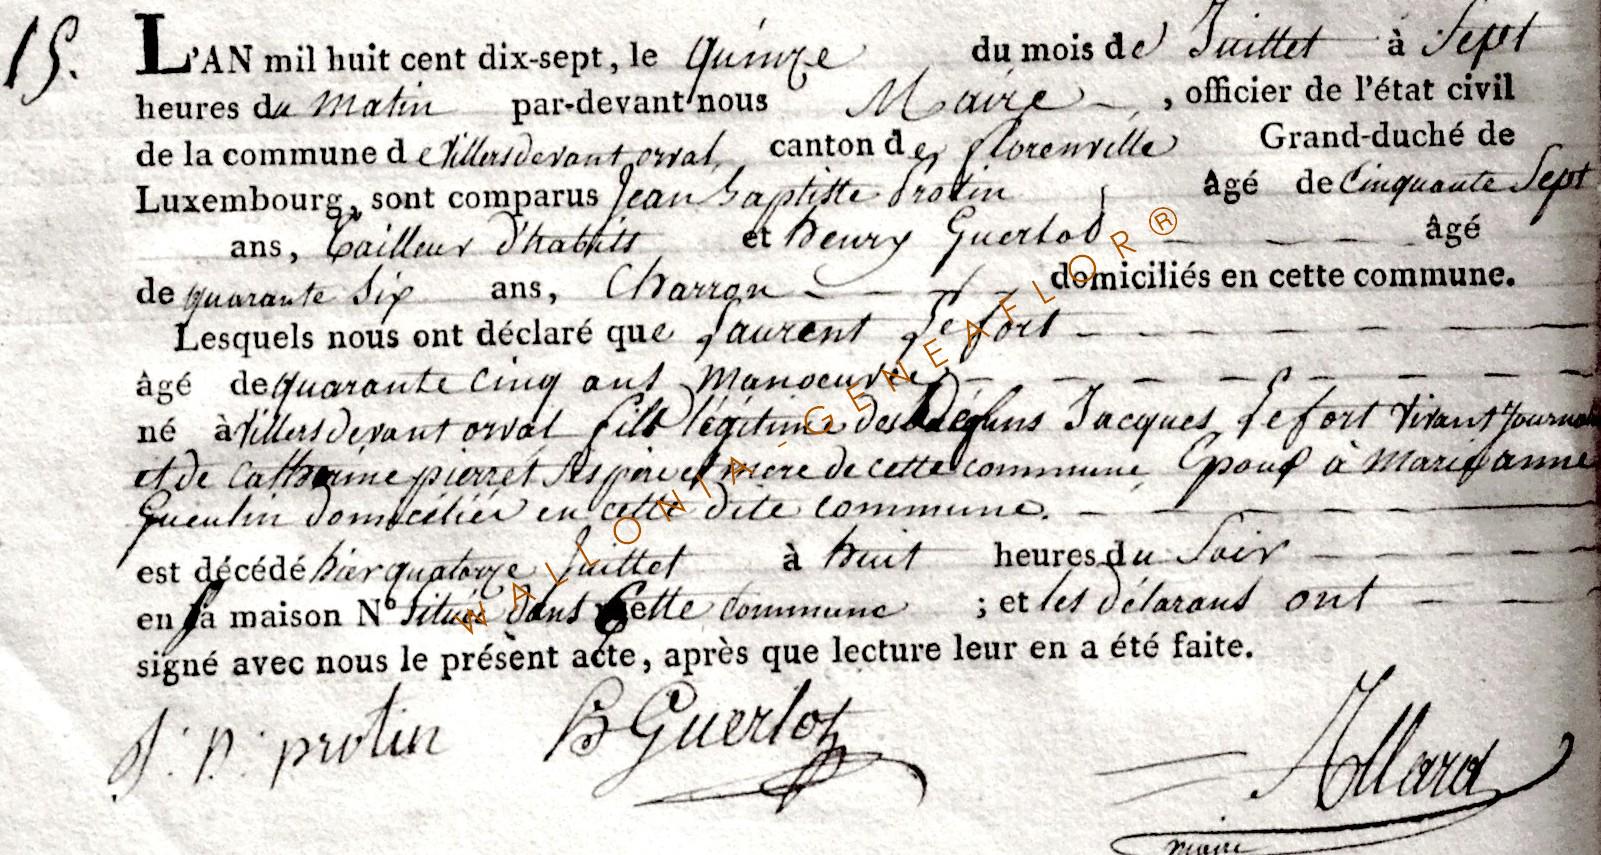 15.
L'AN mil huit cent dix-sept, le quinze du mois de Juillet à Sept
heures du matin par-devant nous Maire, officier de l'état civil
de la commune de Villersdevant orval, canton de florenville Grand-duché de
Luxembourg, sont comparus Jean baptiste Protin âgé de Cinquante Sept
ans, tailleur d'habits et henry Guerlot âgé
de quarante Six ans, Charron domiciliés en cette commune.
Lesquels nous ont déclaré que Laurent Lefort
âgé de quarante cinq ans manoeuvre
né à Villersdevant orval fils légitime des défuns Jacques Lefort vivant
et de catherine pierret Ses père et mere de cette commune, Epoux à marie anne
Gueulin domicéliée en cette dite commune.
est décédé hier quatorze Juillet à huit heures du Soir
en sa maison N° Située dans Cette commune ; et les délarans ont
signé avec nous le présent acte, après que lecture leur en a été faite.
protin Guerlot Allard
maire
WALLONIA-GENEAFLOR®